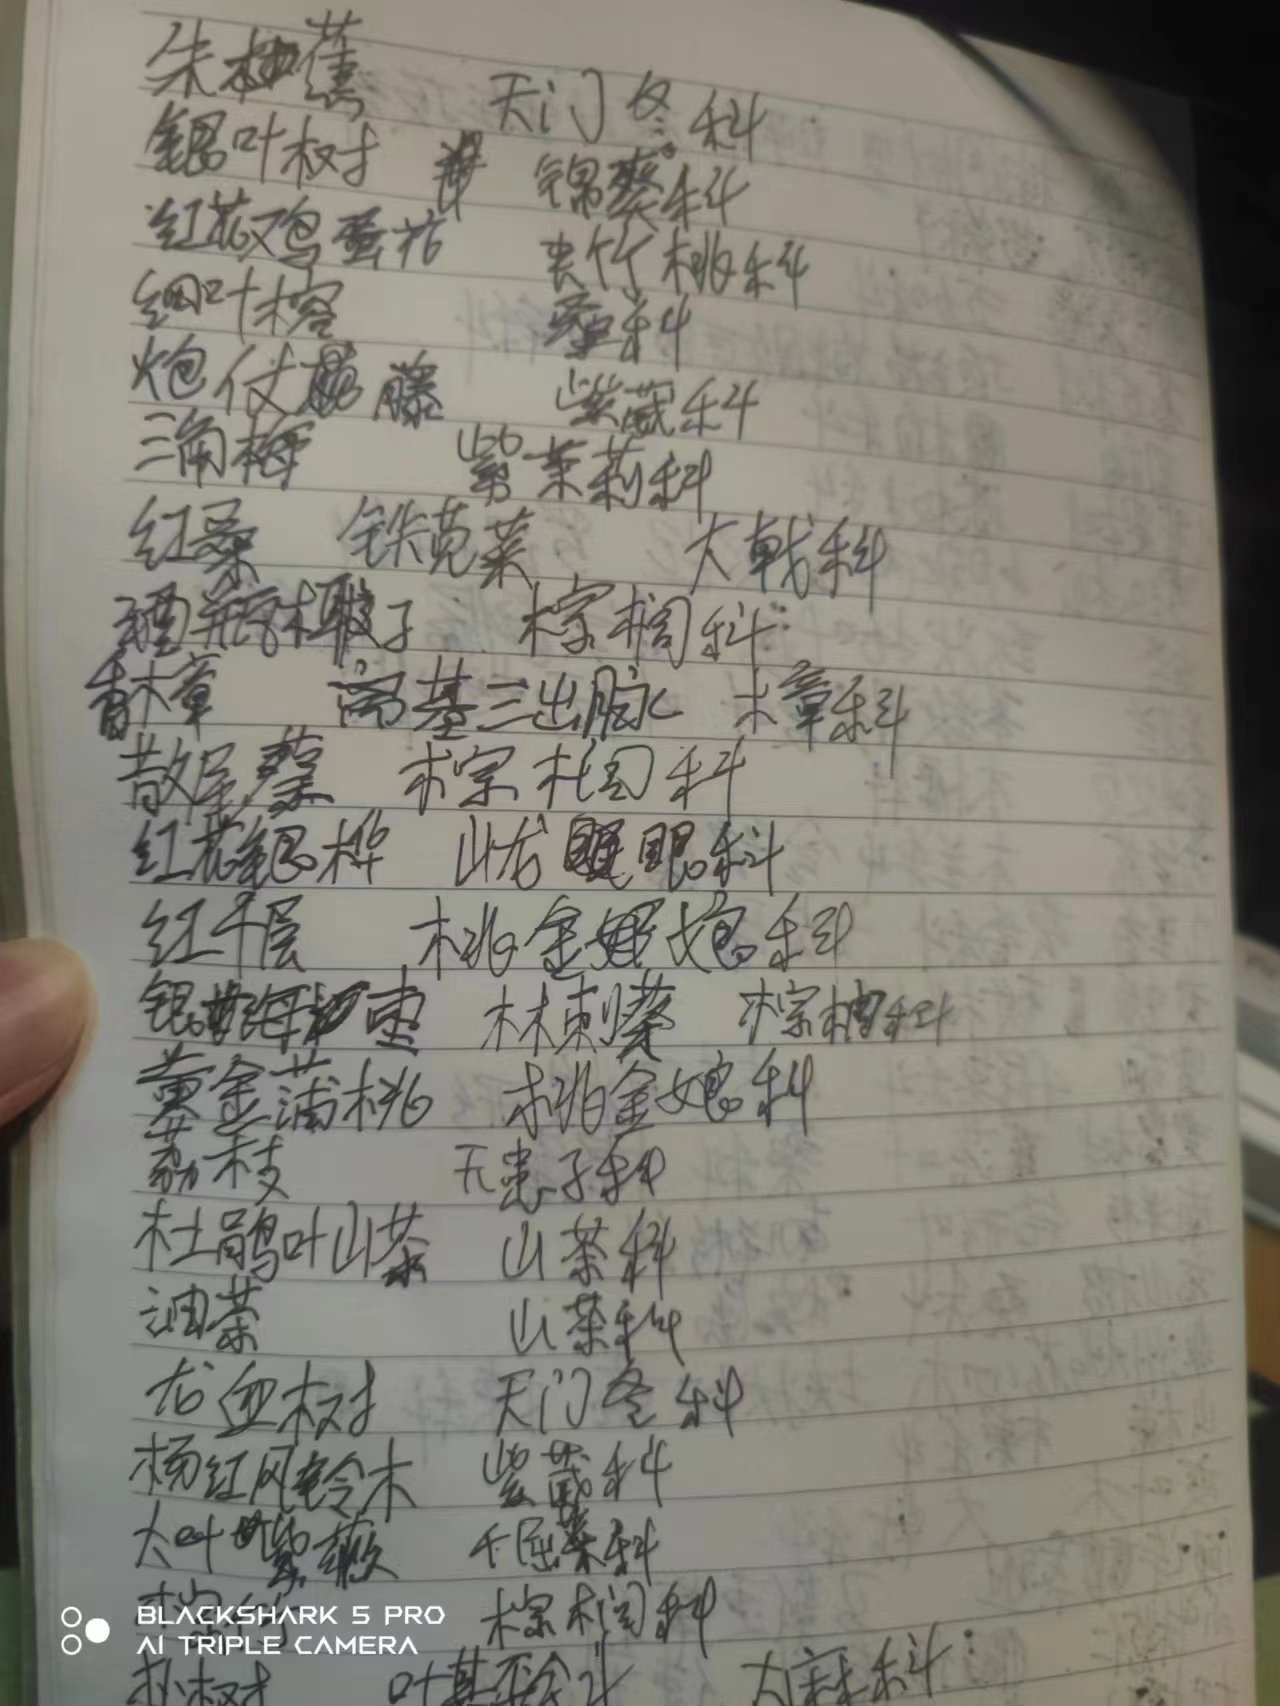 朱蕉 天门冬科
银叶树 锦葵科
红花鸡蛋花 夹竹桃科
细叶榕 桑科
炮仗藤 紫葳科
三角梅 紫茉莉科
红桑 铁苋菜 大戟科
酒瓶椰子 棕榈科
香樟 离基三出脉 樟科
散尾葵 棕榈科
红花银桦 山龙眼科
红千层 桃金娘科
银海枣 林刺葵 棕榈科
黄金蒲桃 桃金娘科
荔枝 无患子科
杜鹃叶山茶 山茶科
油茶 山茶科
龙血树 天门冬科
杨红风铃木 紫葳科
大叶紫薇 千屈菜科
棕竹 棕榈科
朴树 叶基歪 大麻科
BLACKSHARK 5 PRO
AI TRIPLE CAMERA